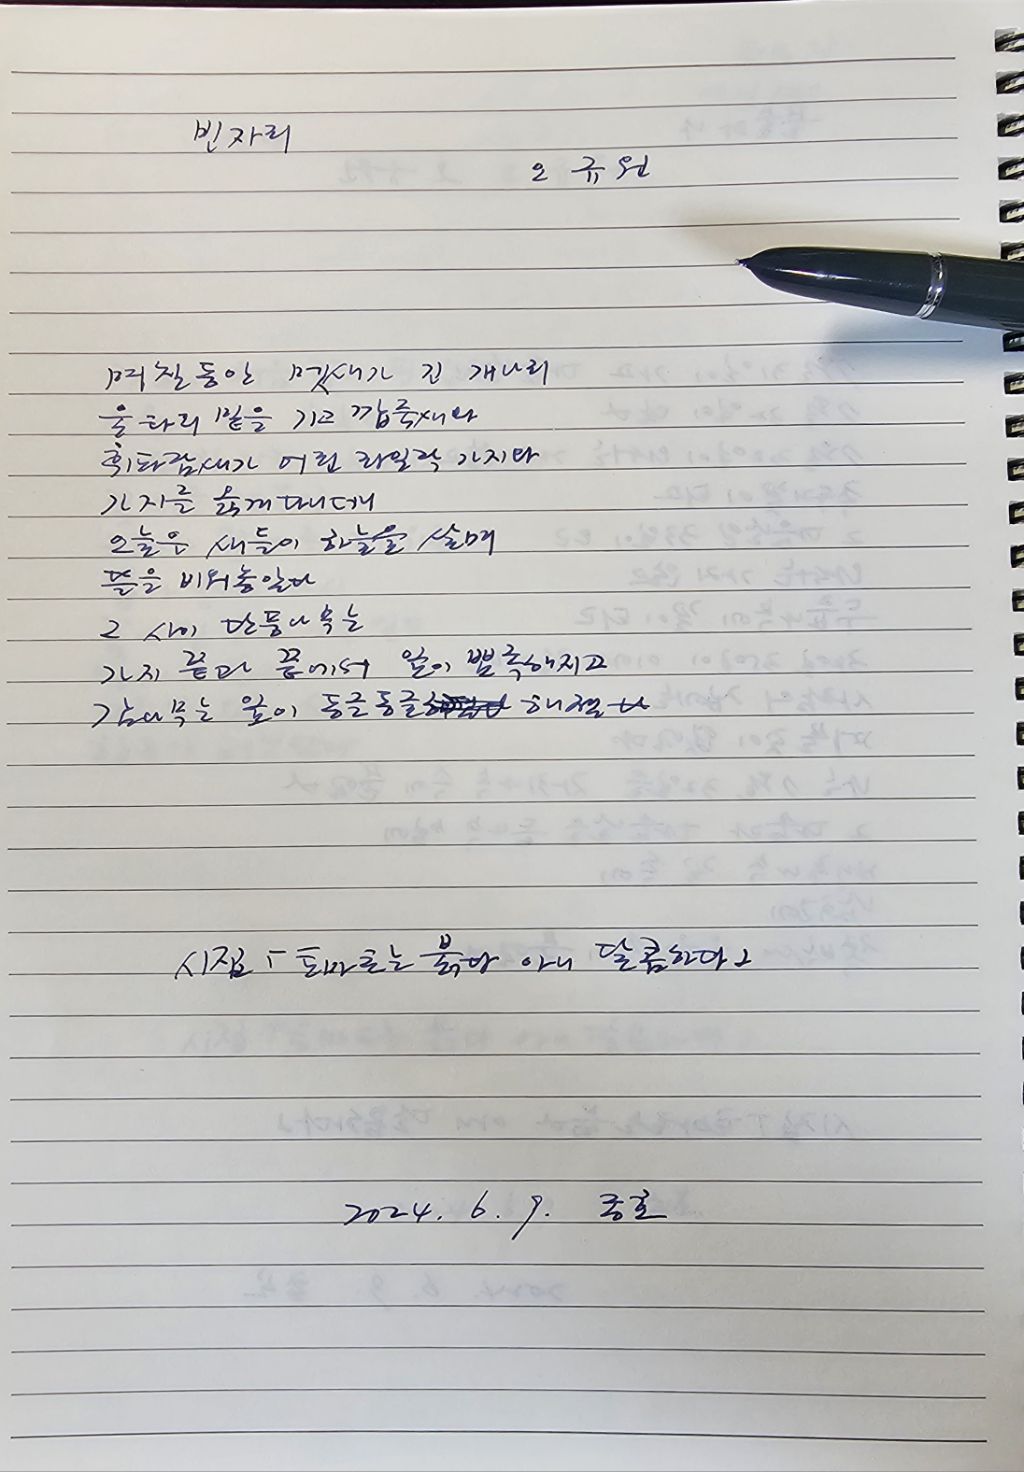 빈자리
오 규원
며칠동안 멧새가 긴 개나리
울타리 밑을 기고 깝죽새와
휘파람새가 어린 라일락 가지와
가지를 옮겨다니더니
오늘은 새들이 하늘을 살며
뜰을 비워놓았다
그 사이 단풍나무는
가지 끝과 끝에서 잎이 뾰족해지고
감나무는 잎이 둥글둥글 해졌다
시집 「토마토는 붉다 아니 달콤하다」
2024. 6. 9. 종호